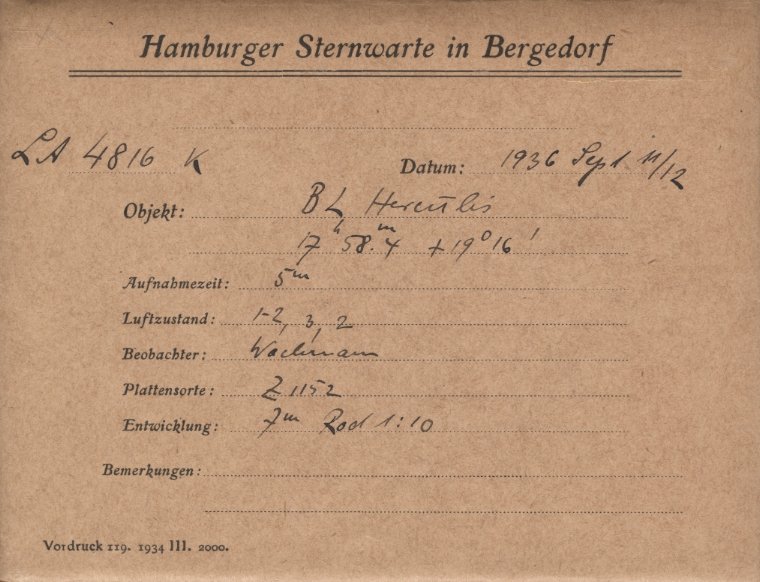 Hamburger Sternwarte in Bergedorf
LA 4816 K Datum: 1936 Sept 11/12
Objekt: BL Herculis
17h 58.m4 +19° 16'
Aufnahmezeit: 5m
Luftzustand: 1-2, 3, 2
Beobachter: Wachmann
Plattensorte: Z 1152
Entwicklung: 7m Rod 1:10
Bemerkungen:
Vordruck 119. 1934 III. 2000.